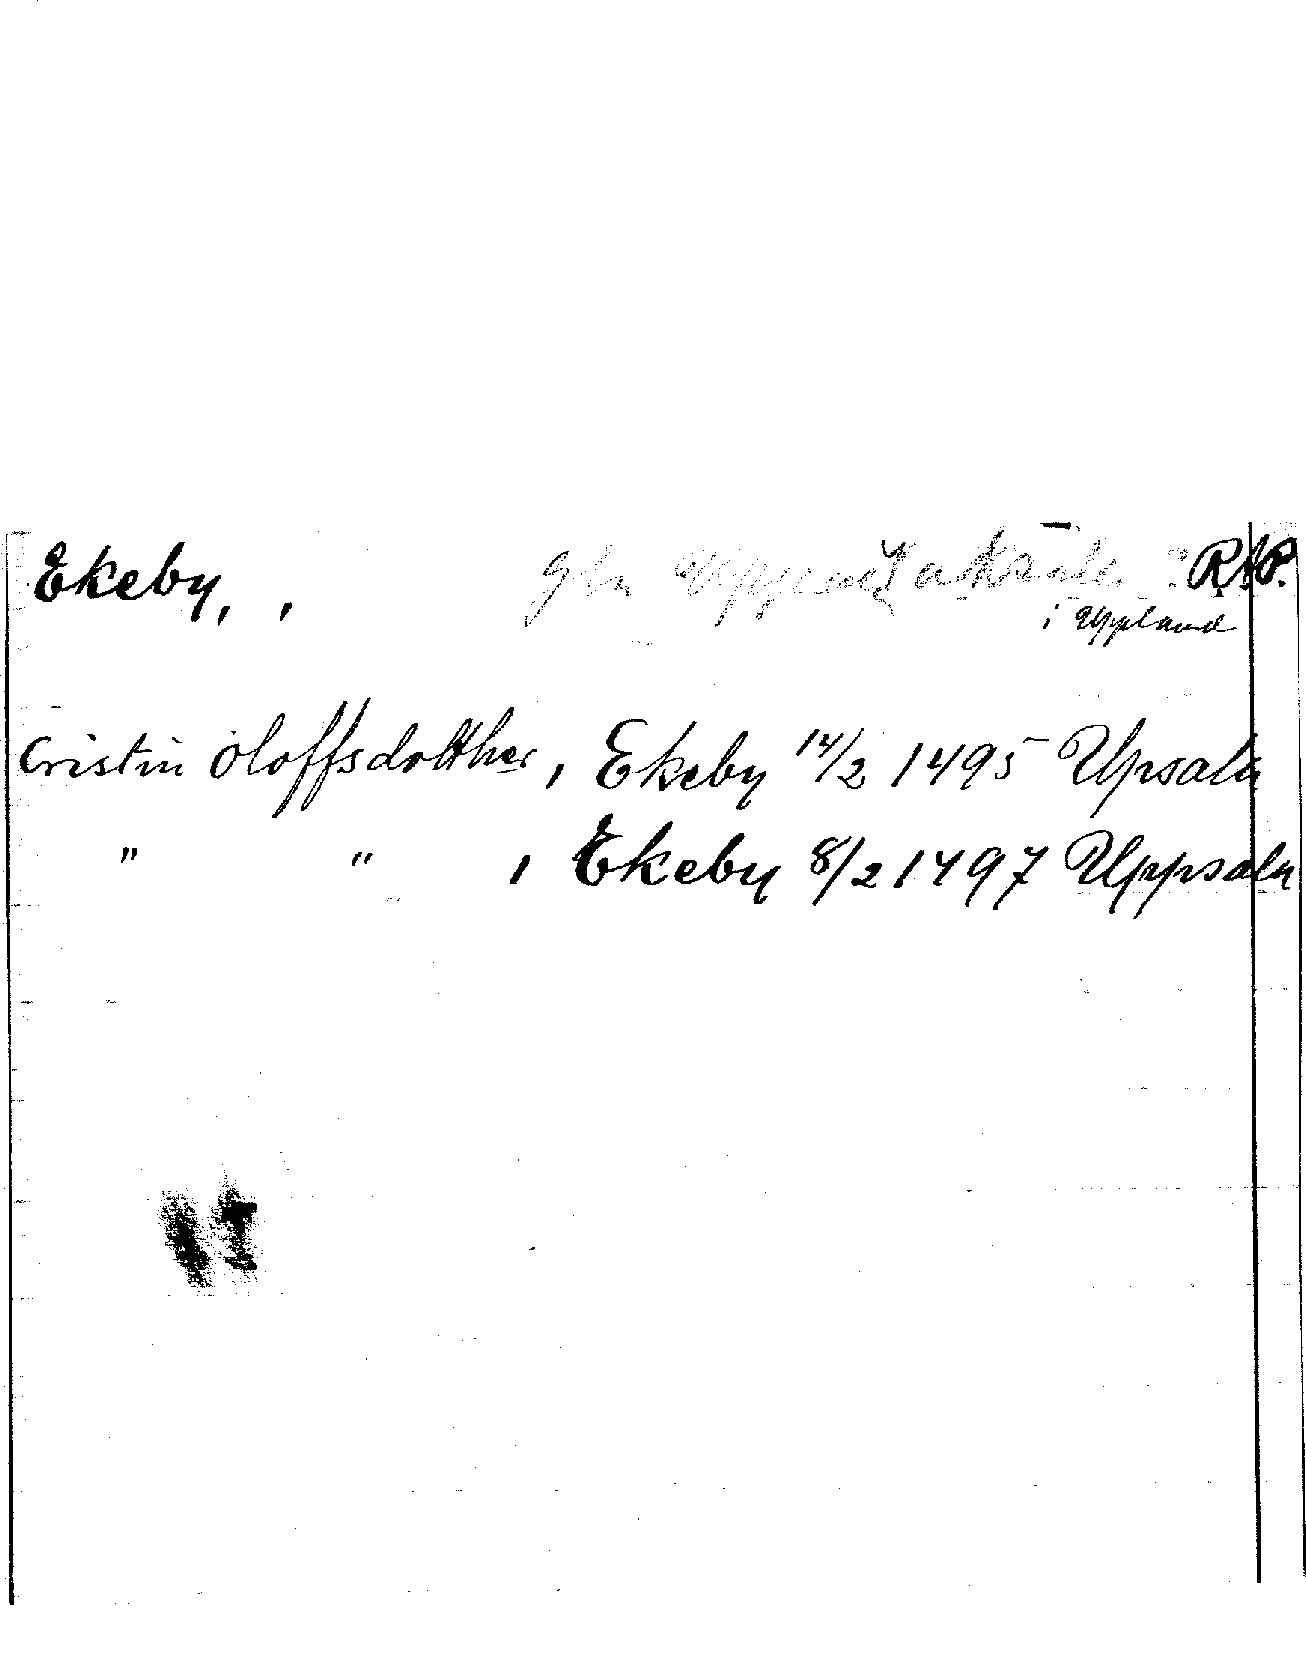 Ekeby, , RAP.
i Uppland
Cristin Oloffsdotther, Ekeby 14/2 1495 Upsala
" " , Ekeby 8/2 1497 Uppsala